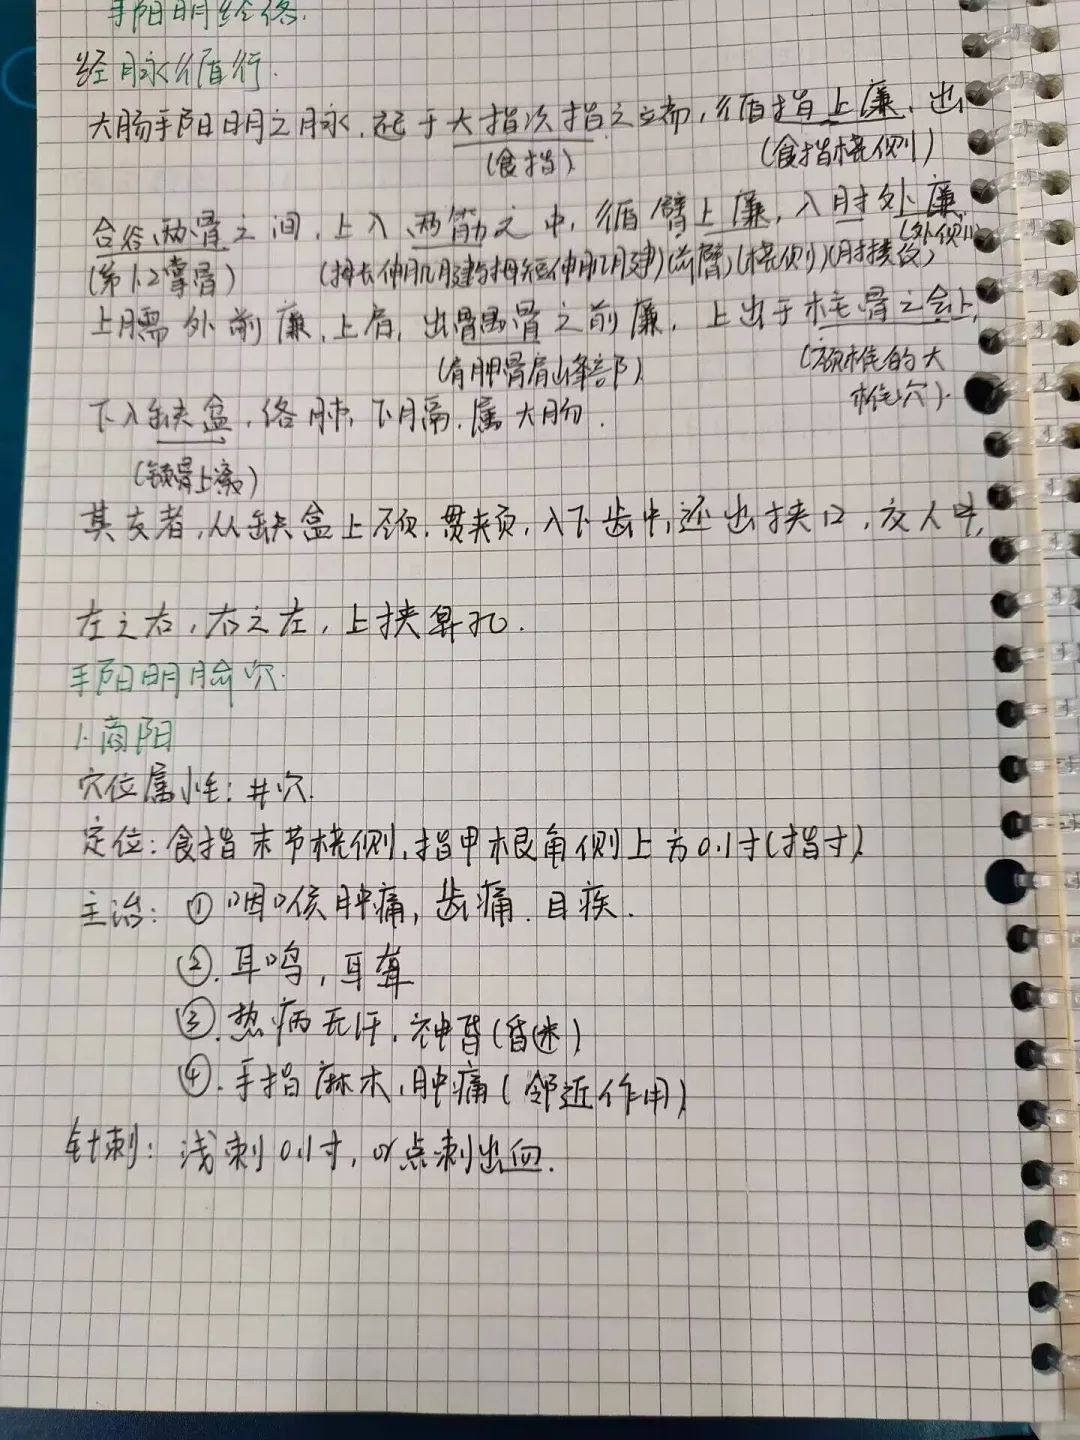 手阳明经络.
经脉循行.
大肠手阳明之脉,起于大指次指之端,循指上廉,出
(食指) (食指桡侧)
合谷两骨之间,上入两筋之中,循臂上廉,入肘外廉,
(外侧)
(第1.2掌骨) (拇长伸肌腱与拇短伸肌腱)(前臂)(桡侧)(肘横纹)
上臑外前廉,上肩,出髃骨之前廉,上出于柱骨之会上,
(肩胛骨肩峰部) (颈椎的大
椎穴)
下入缺盆,络肺,下膈,属大肠.
(锁骨上窝)
其支者,从缺盆上颈,贯颊,入下齿中,还出挟口,交人中,
左之右,右之左,上挟鼻孔.
手阳明腧穴.
1.商阳
穴位属性:井穴.
定位:食指末节桡侧,指甲根角侧上方0.1寸(指寸)
主治:①咽喉肿痛,齿痛.目疾.
②.耳鸣,耳聋
③.热病无汗,神昏(昏迷)
④.手指麻木,肿痛(邻近作用)
针刺:浅刺0.1寸,or点刺出血.